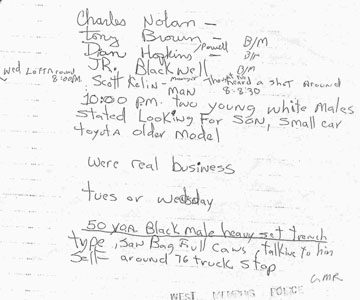 Charles Nolan -
Tony Brown - B/M
Dan Hopkins / Powell = B/M
JR. Blackwell B/M
Wed Left around 8:00pm.
Scott Kelin - manager thought he heard a shot around
MAN 8-8:30
10:00 pm. two young white males
stated Looking For SON, small car
toyota older model
were real business
tues or wedsday
50 yar Black male heavy set trench
type, San Bag Full Caws, talking to him
Self - around 76 truck stop
GMR
WEST MEMPHIS POLICE